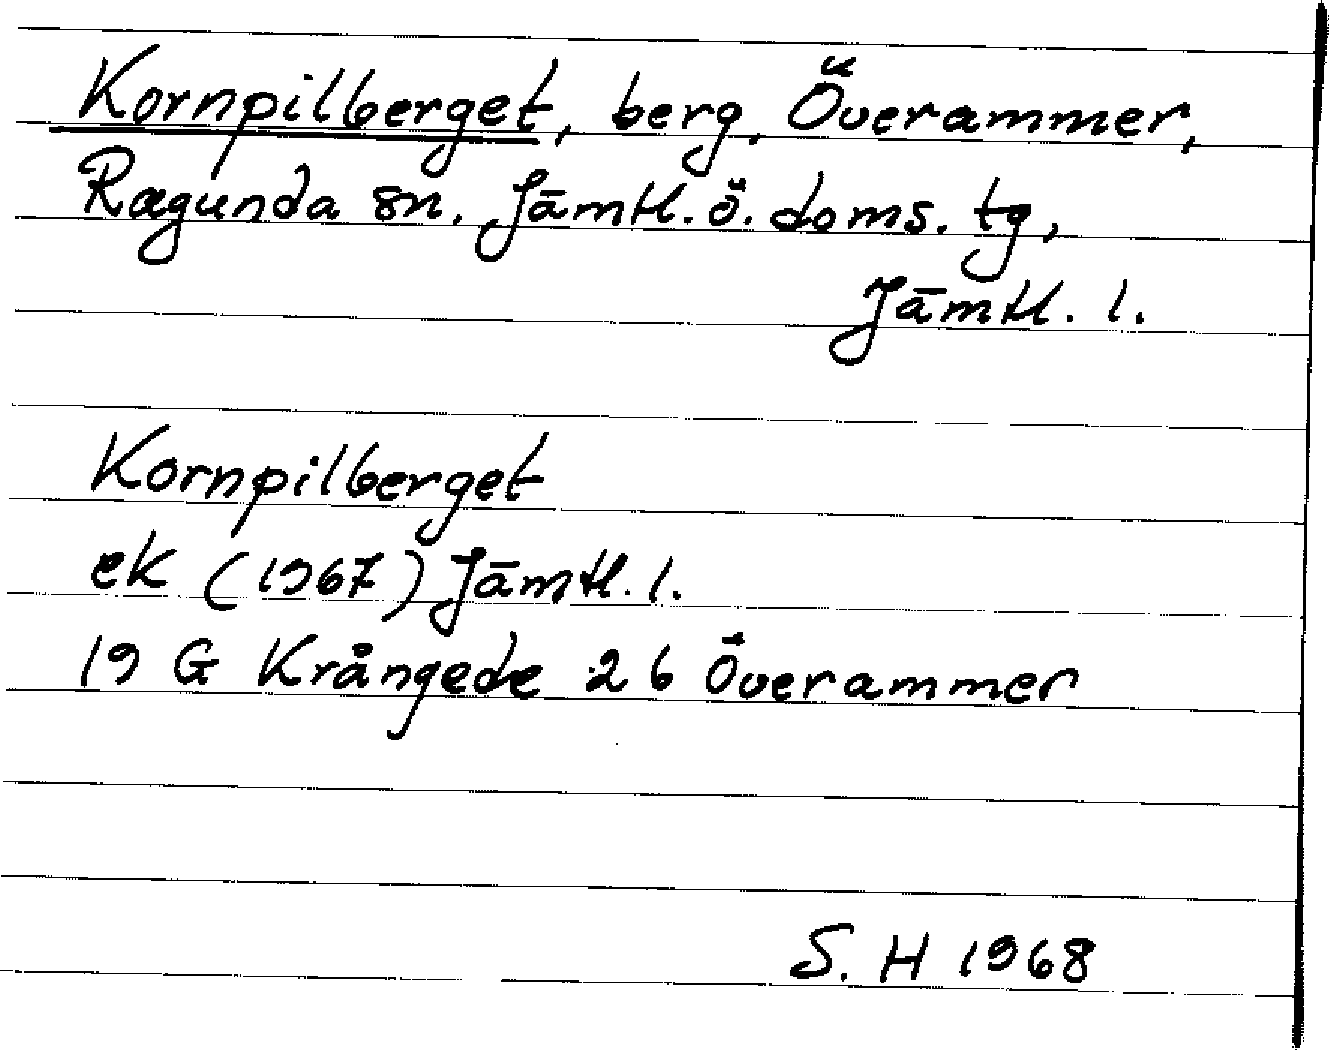 Kornpilberget, berg, Överammer,
Ragunda sn. Jämtl. ö. doms. tg,
Jämtl. l.
Kornpilberget
ek (1967) Jämtl. l.
19 G Krångede 2 b Överammer
S. H 1968